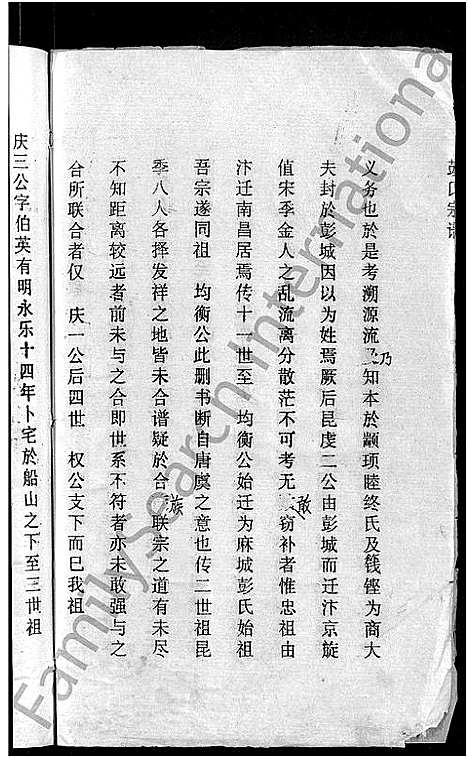 彭氏宗谱
义务也於是考溯源流乃知本於颛顼睦终氏及钱铿为商大
夫封於彭城因以为姓焉厥后昆虔二公由彭城而迁汴京旋
值宋季金人之乱流离分散茫不可考无敢窃补者惟忠祖由
汴迁南昌居焉传十一世至 均衡公始迁为麻城彭氏始祖
吾宗遂同祖 均衡公此删书断自唐虞之意也传二世祖昆
季八人各择发祥之地皆未合谱疑於合族联宗之道有未尽
不知距离较远者前未与之合即世系不符者亦未敢强与之
合所联合者仅 庆一公后四世 权公支下而已我祖
庆三公字伯英有明永乐十四年卜宅於船山之下至三世祖
FamilySearch International